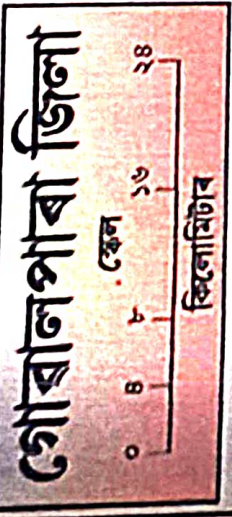 গোৱালপাৰা জিলা
স্কেল
০ ৪ ৮ ১৬ ২৪
কিলোমিটাৰ